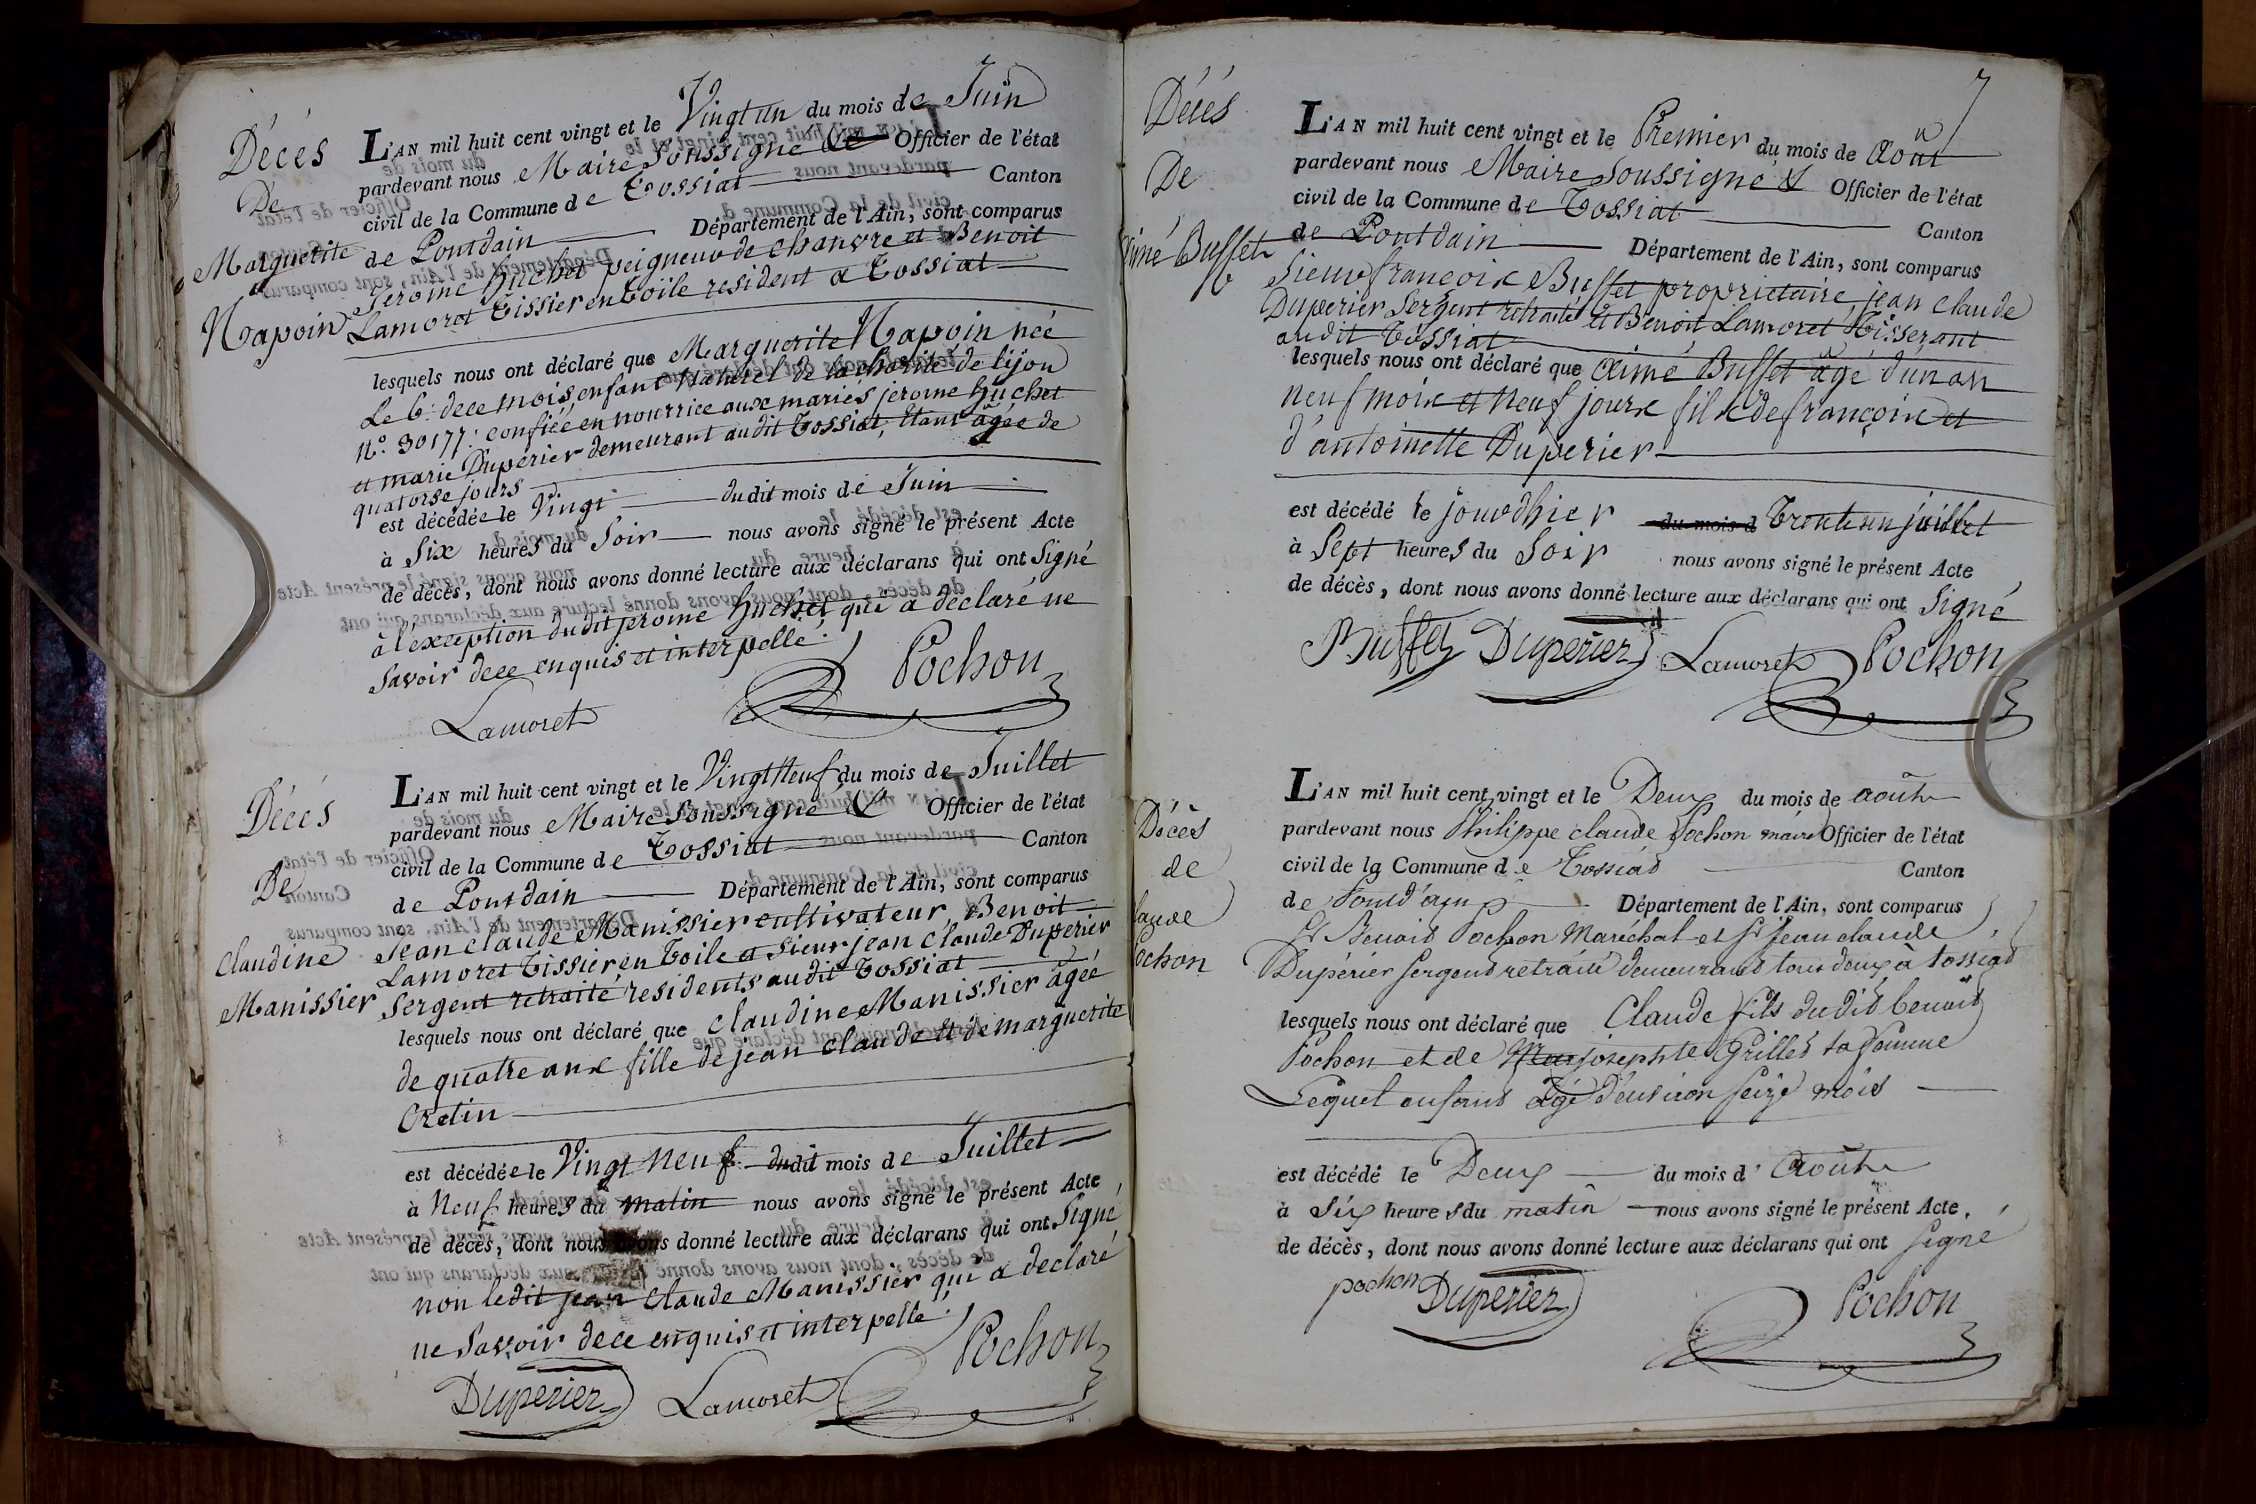 Décès
De
Marguerite
Napoin
L'AN mil huit cent vingt et le Vingt un du mois de Juin
pardevant nous Maire Soussigné & Officier de l'état
civil de la Commune de Tossiat Canton
de Pontdain Département de l'Ain, sont comparus
Jerome huchet peigneur de chanvre et Benoit
Lamoret Tissier en Toile resident a Tossiat
lesquels nous ont déclaré que Marguerite Napoin née
Le 6 de ce mois enfant Naturel de la charité de
N.° 30177. confiée en nourrice aux mariés jerome huchet
et marie Duperier demeurant audit Tossiat, Etant âgée de
quatorse jours
est décédée le Vingt dudit mois de Juin
à Six heures du Soir nous avons signé le présent Acte
de décès, dont nous avons donné lecture aux déclarans qui ont Signé
à l'éxception dudit jerome huchet qui a déclaré ne
Savoir de ce enquis et interpellé.
Lamoret Pochon
Décés
De
Claudine
Manissier
L'AN mil huit cent vingt et le Vingt Neuf du mois de Juillet
pardevant nous Maire Soussigné & Officier de l'état
civil de la Commune de Tossiat Canton
de Pontdain Département de l'Ain, sont comparus
Jean claude Manissier cultivateur, Benoit
Lamoret Tissier en Toile et Sieur jean Claude Duperier
Sergent retraité residents audit Tossiat
lesquels nous ont déclaré que Claudine Manissier âgée
de quatre ans fille de jean claude et de marguerite
Cretin
est décédée le Vingt Neuf dudit mois de Juillet
à Neuf heures du matin nous avons signé le présent Acte
de décès, dont nous avons donné lecture aux déclarans qui ont Signé
non ledit jean Claude Manissier qui a declaré
ne Savoir de ce enquis et interpellé.
Duperier Lamoret Pochon
7
Décés
De
Aimé Buffet
L'AN mil huit cent vingt et le Premier du mois de Aout
pardevant nous Maire Soussigné & Officier de l'état
civil de la Commune de Tossiat Canton
de Pontdain Département de l'Ain, sont comparus
Sieur françois Buffet propriétaire, jean claude
Duperier Sergent retraité et Benoit Lamoret Tisserant
audit Tossiat
lesquels nous ont déclaré que Aimé Buffet âgé d'un an
neuf mois et neuf jours fils de françois et
d'antoinette Duperier
est décédé le jour d'hier du mois d Trente un juillet
à Sept heures du Soir nous avons signé le présent Acte
de décès, dont nous avons donné lecture aux déclarans qui ont Signé
Buffet Duperier Lamoret Pochon
Décès
de
laude
ochon
L'AN mil huit cent vingt et le Deux du mois de août
pardevant nous Philippe claude Pochon maire Officier de l'état
civil de la Commune de Tossiat Canton
de Pontd'ain Département de l'Ain, sont comparus
Sr Benoit Pochon Maréchal et Sr Jean claude
Dupérier Sergent retraité demeurant tous deux à tossiat
lesquels nous ont déclaré que Claude fils dudit benoit
Pochon et de josephte Grillet sa femme
Lequel enfant âgé d'environ seize mois
est décédé le Deux du mois d' Août
à Six heures du matin nous avons signé le présent Acte
de décès, dont nous avons donné lecture aux déclarans qui ont signé
pochon Duperier Pochon